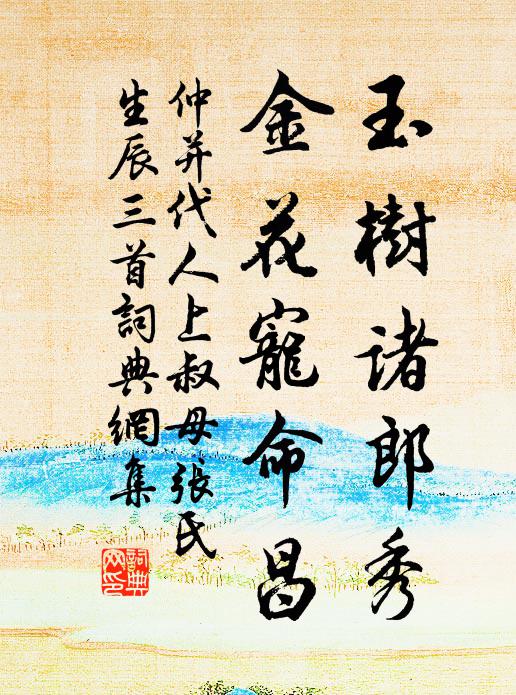 玉樹诸郎秀
金花寵命昌
仲并代人上叔母張氏
生辰三首詞典網集
詞典
网印